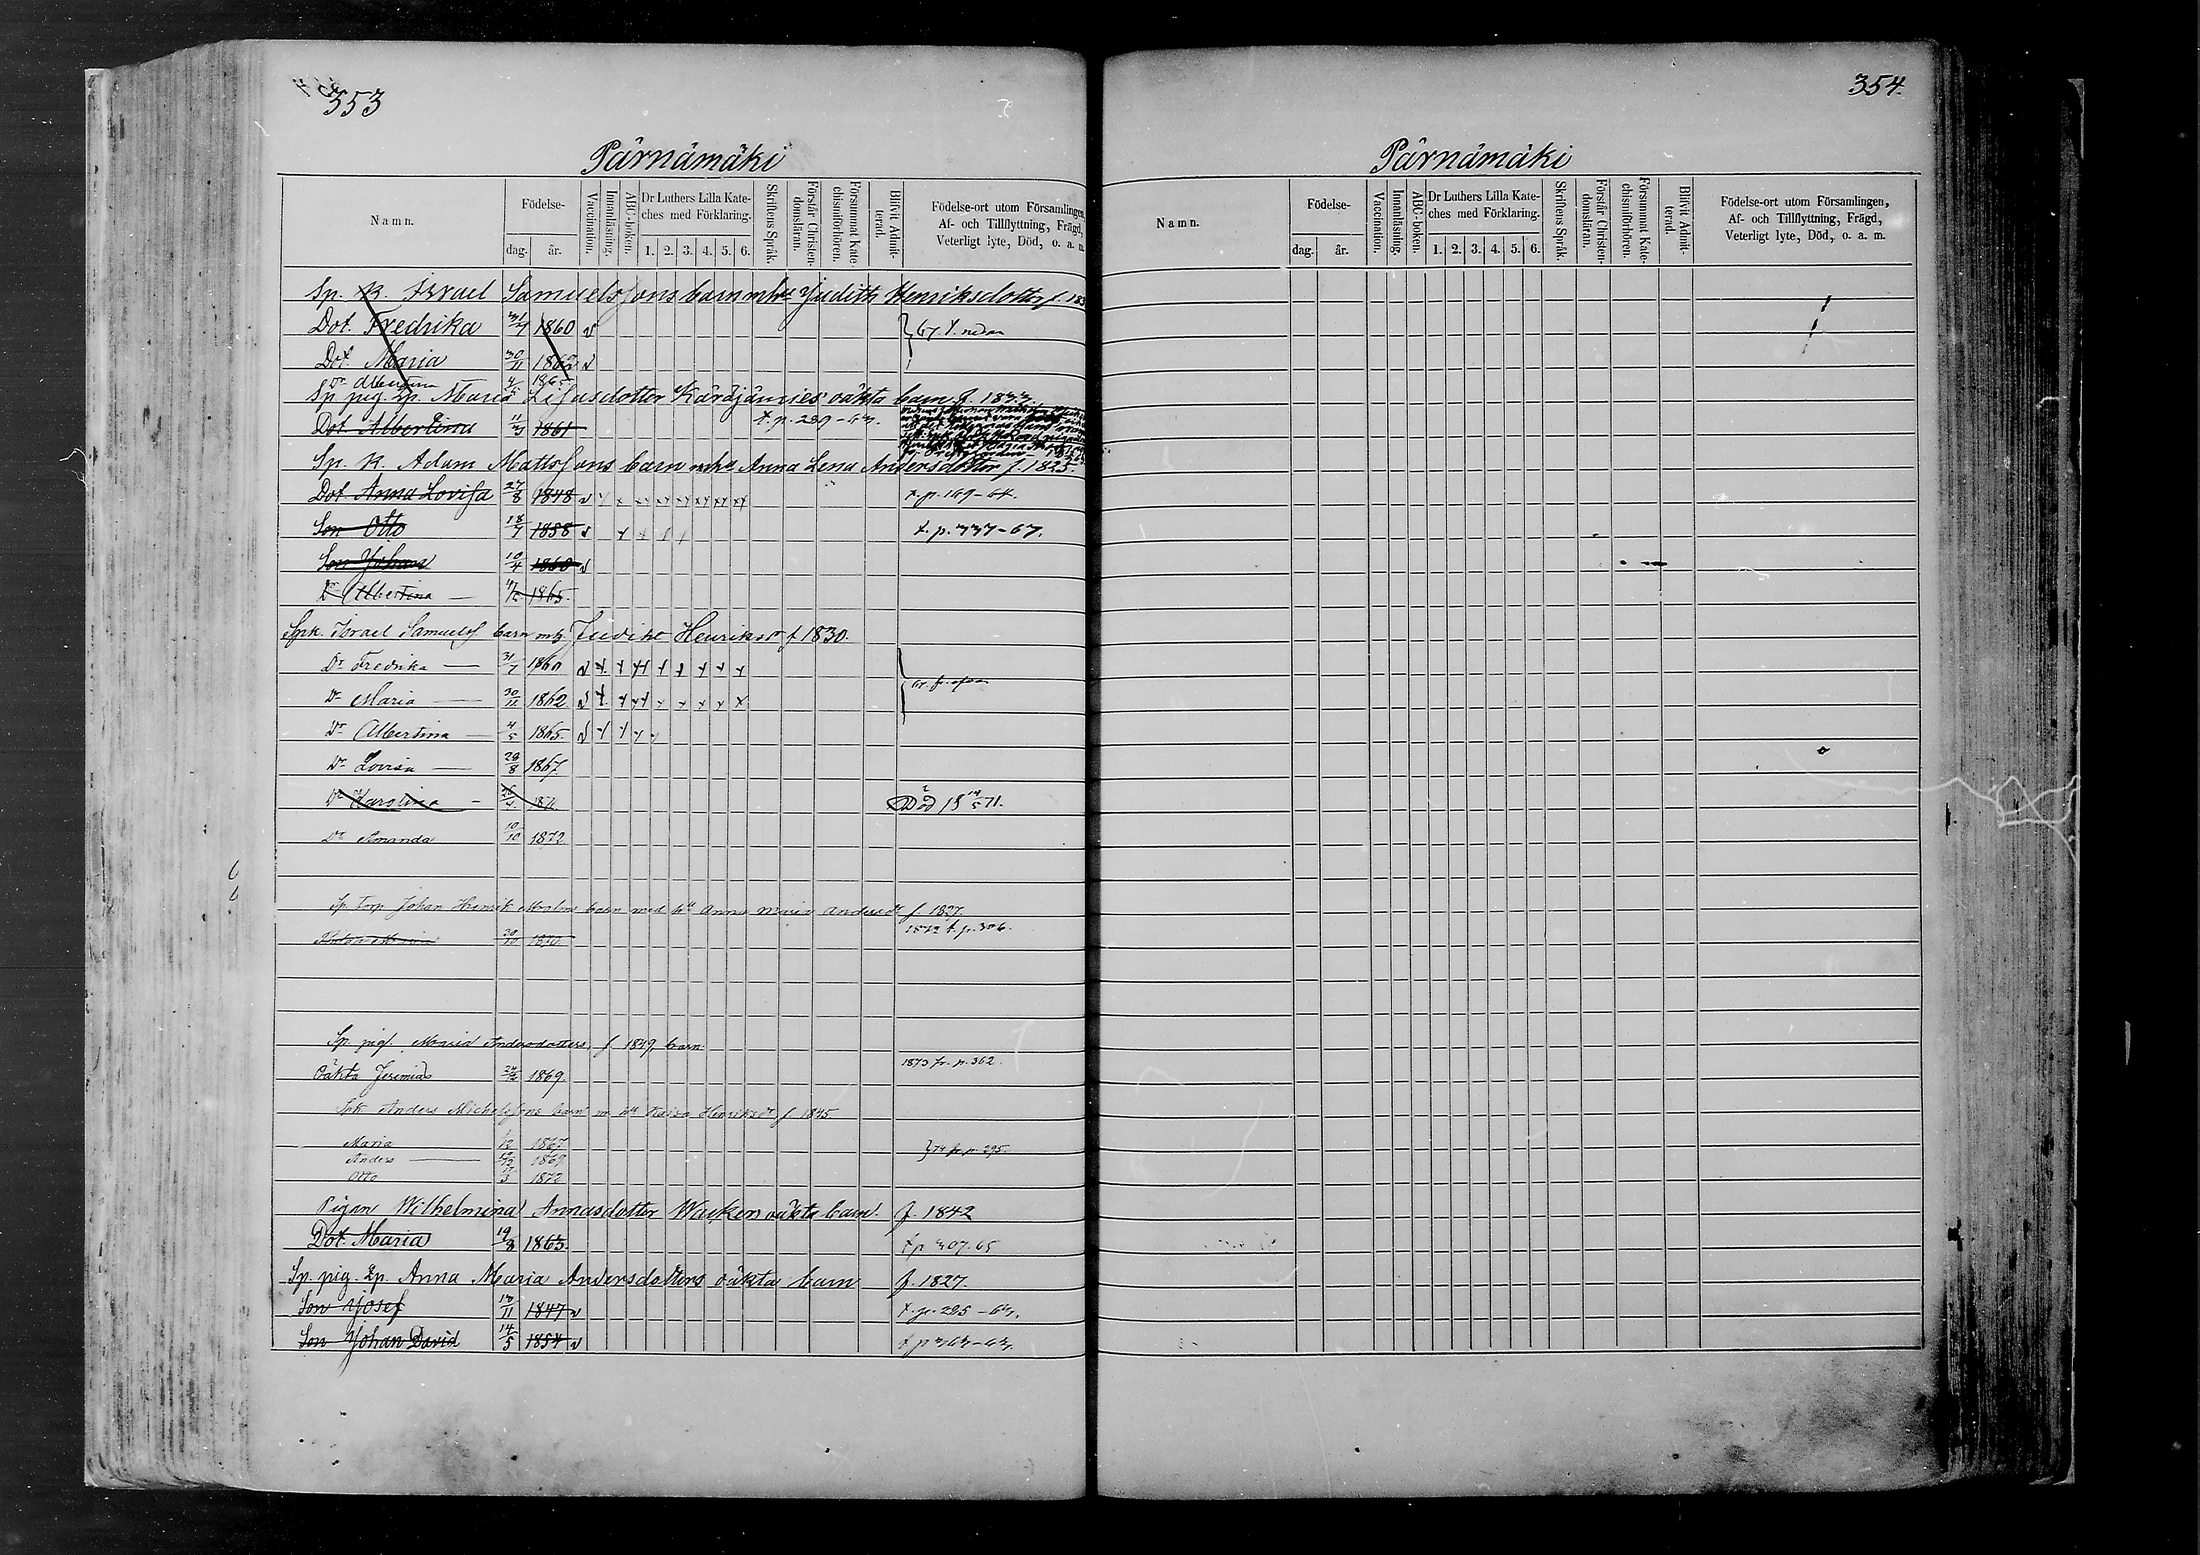 353
Pärnämäki
Namn.
Födelse-
dag. år.
Vaccination.
Innanläsning.
ABC-boken.
Dr Luthers Lilla Kate-
ches med Förklaring.
1. 2. 3. 4. 5. 6.
Skriftens Språk.
Förstår Christen-
domsläran.
Försummat Kate-
chismiförhören.
Blifvit Admit-
terad.
Födelse-ort utom Församlingen,
Af- och Tillflyttning, Frägd,
Veterligt lyte, Död, o. a. m.
Sp. k. Israel Samuelssons barn m hu Judith Henriksdotter f. 183
Dot. Fredrika 31/7 1860 v
Dot. Maria 30/11 1862 v
Dr Albertina 4/5 1865
Sp. pig. Lp. Maria oäkta barn f. 1833.
Dot. Albertina 11/3 1861 t. p. 289-63.
Sp. k. Adam Mattssons barn m hu Anna Lena Andersdotter f. 1825.
Dot. Anna Lovisa 27/8 1848 v t. p. 169-64.
Son Otto 18/7 1858 v t. p. 337-67.
Son Johan 10/4 1860 v
Dr Albertina 4/5 1865.
Spk. Israel Samuels barn m h Judith Henriksdr f 1830.
Dr Fredrika 31/7 1860 v
Dr Maria 30/11 1862 v
Dr Albertina 4/5 1865. v
Dr Lovisa 29/8 1867.
Dr Karolina Död 18 14/5 71.
Dr Amanda 10/10 1872
Sp. Torp. Johan Henrik barn med hu Anna Maria Andersdr f. 1827.
1872 t. p. 306.
Sp. pig. Maria Andersdotters f 1849, barn.
Oäkta Jeremias 1869. 1873 fr. p. 362.
Spk Anders Michelssons barn m hu Kaisa Henriksdr f 1845
Maria 1867
Anders 1869 } 74 fr. p. 295.
Otto 1872
Pigan Wilhelmina Annasdotter oäkta barn. f. 1842
Dot. Maria 19/8 1863. t p 307. 65
Sp. pig. Lp. Anna Maria Andersdotters oäkta barn f. 1827.
Son Josef 1847 v t. p. 225-63.
Son Johan David 14/5 1854 v t p 363-63.
354.
Pärnämäki
Namn.
Födelse-
dag. år.
Vaccination.
Innanläsning.
ABC-boken.
Dr Luthers Lilla Kate-
ches med Förklaring.
1. 2. 3. 4. 5. 6.
Skriftens Språk.
Förstår Christen-
domsläran.
Försummat Kate-
chismiförhören.
Blifvit Admit-
terad.
Födelse-ort utom Församlingen,
Af- och Tillflyttning, Frägd,
Veterligt lyte, Död, o. a. m.